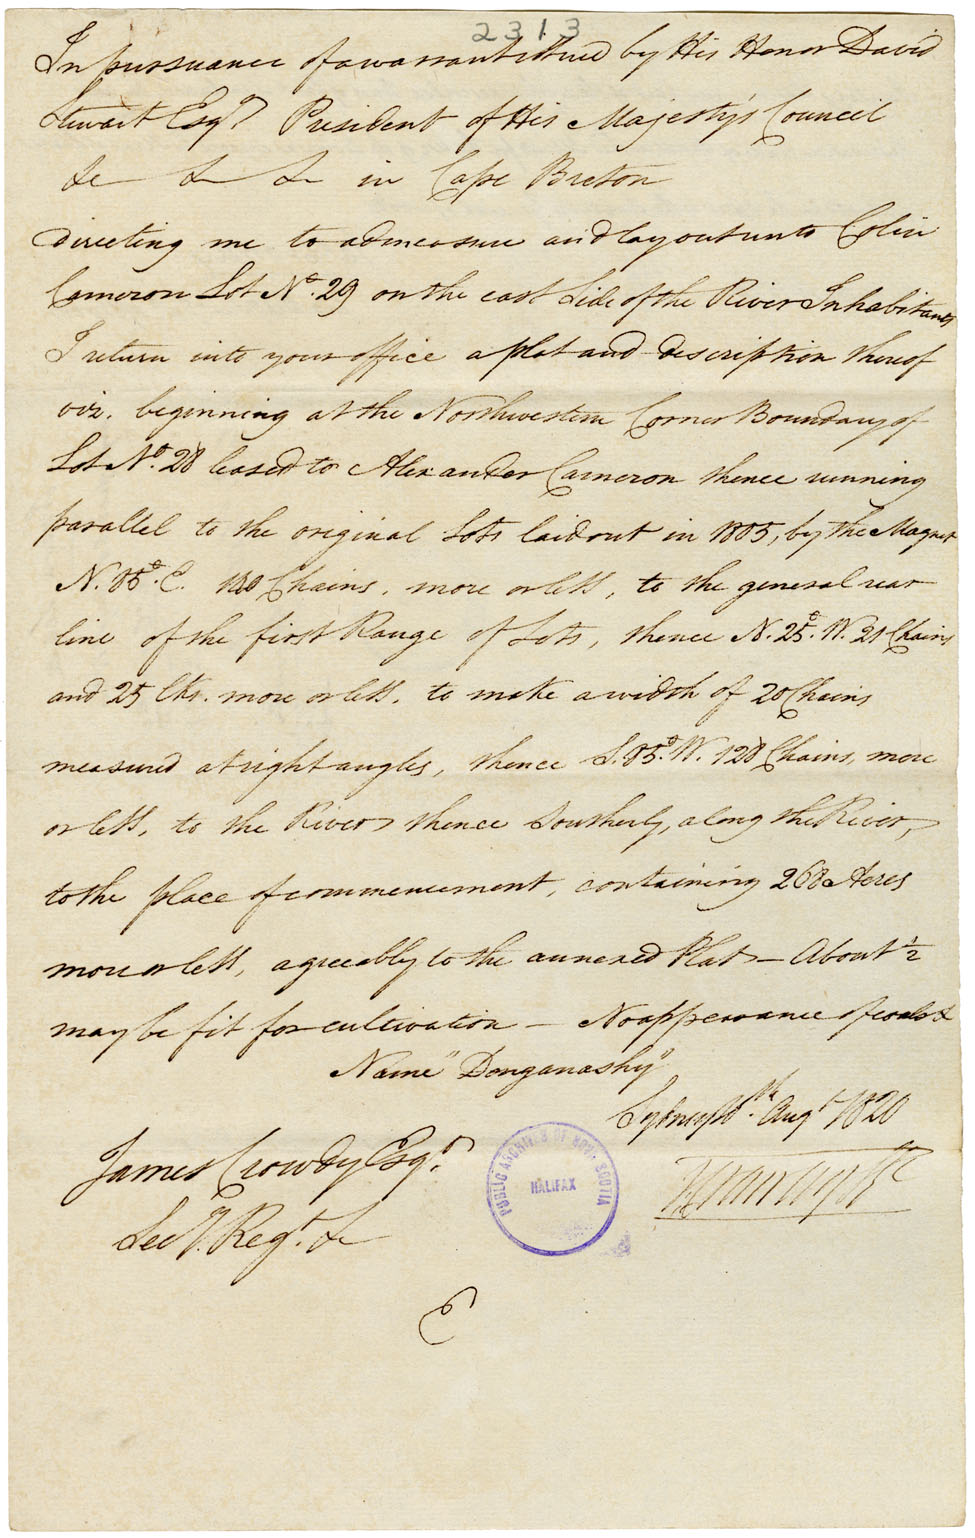 2313
In pursuance of a warrant issued by His Honor David
Stewart Esqr. President of His Majesty's Council
&c &c &c in Cape Breton
directing me to admeasure and lay out unto Colin
Cameron Lot No. 29 on the east Side of the River Inhabitants
I return into your office a plot and description thereof
viz. beginning at the Northwestern Corner Boundary of
Lot No. 28 leased to Alexander Cameron thence running
parallel to the original Lots laid out in 1805, by the Magnet
N. 85° E. Chains, more or less, to the general rear
line of the first Range of Lots, thence N. 25° W. 21 Chains
and 25 lks. more or less, to make a width of 20 Chains
measured at right angles, thence S. 85° W. 128 Chains, more
or less, to the River thence Southerly, along the River,
to the place of commencement, containing 268 Acres
more or less, agreeably to the annexed Plat — About ½
may be fit for cultivation — No appearance of coals &
Name "Donganashy"
Sydney Augt 1820
James Crowdy Esqr.
Secy. Regt. &c
PUBLIC ARCHIVES OF NOVA SCOTIA
HALIFAX